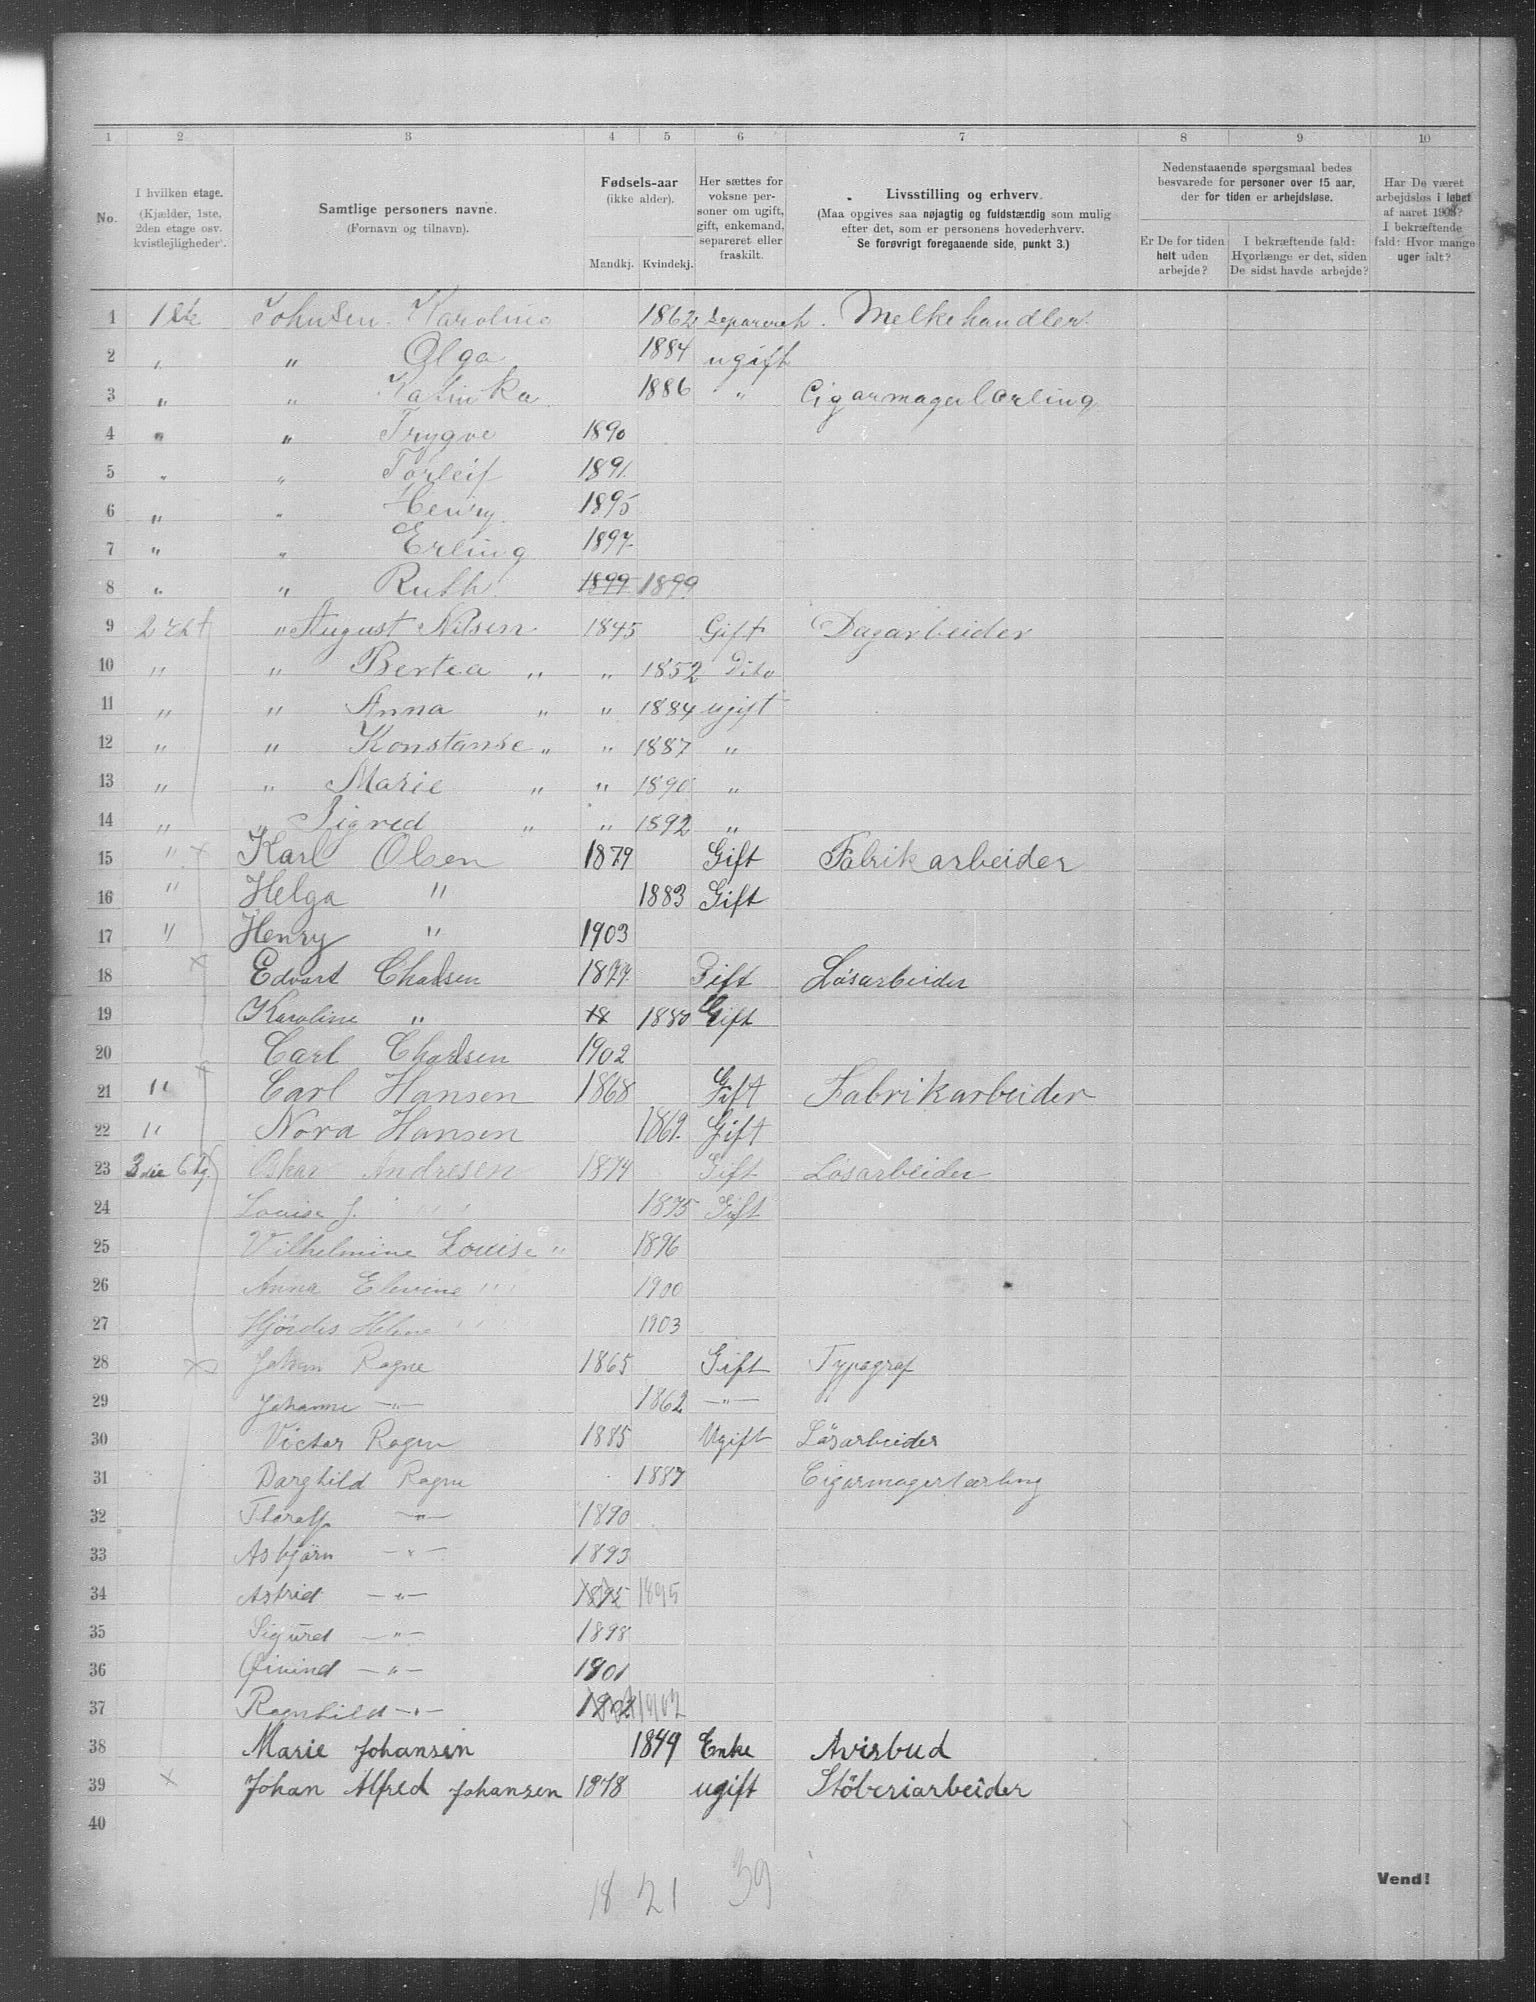 1 2 3 4 5 6 7 8 9 10
No.
I hvilken etage. (Kjælder, 1ste, 2den etage osv. kvistlejligheder).
Samtlige personers navne. (Fornavn og tilnavn).
Fødsels-aar (ikke alder).
Mandkj. Kvindekj.
Her sættes for voksne personer om ugift, gift, enkemand, separeret eller fraskilt.
Livsstilling og erhverv.
(Maa opgives saa nøjagtig og fuldstændig som mulig efter det, som er personens hovederhverv.
Se forøvrigt foregaaende side, punkt 3.)
Nedenstaaende spørgsmaal bedes besvarede for personer over 15 aar, der for tiden er arbejdsløse.
Er De for tiden helt uden arbejde?
I bekræftende fald: Hvorlænge er det, siden De sidst havde arbejde?
Har De været arbejdsløs i løbet af aaret 1903? I bekræftende fald: Hvor mange uger ialt?
1 1ste Johnsen Karoline 1862 Separeret. Melkehandler.
2 " " Olga 1884 ugift
3 " " Katinka 1886 " Cigarmagerlærling
4 " " Trygve 1890
5 " " Torleif 1891
6 " " Henry 1895
7 " " Erling 1897
8 " " Ruth 1899 1899
9 " August Nilsen 1845 Gift Dagarbeider
10 " " Bertea " " 1852 Dito
11 " " Anna " " 1884 ugift
12 " " Konstanse " " 1887 "
13 " " Marie " " 1890 "
14 " " Sigred " " 1892 "
15 " x Karl Olsen 1879 Gift Fabrikarbeider
16 " Helga " 1883 Gift
17 " Henry " 1903
18 x Edvart Charlsen 1877 Gift Løsarbeider
19 Karoline " 18 1880 Gift
20 Carl Charlsen 1902
21 " x Carl Hansen 1868 Gift Fabrikarbeider
22 " Nora Hansen 1869 Gift
23 3die Etg. Oskar Andresen 1874 Gift Løsarbeider
24 Louise J. " " 1875 Gift
25 Vilhelmine Louise " 1896
26 Anna Elevine " " 1900
27 Hjördis Helene " " 1903
28 x Johan Ragne 1865 Gift Typograf
29 Johanne —"— 1862 —"—
30 Victor Ragne 1885 Ugift Løsarbeider
31 Borghild Ragne 1887 Cigarmagerlærling
32 Thoralf —"— 1890
33 Asbjørn —"— 1893
34 Astrid —"— 1895 1895
35 Sigurd —"— 1898
36 Øivind —"— 1901
37 Ragnhild —"— 1902 1902
38 Marie Johansen 1849 Enke Avisbud
39 x Johan Alfred Johansen 1878 ugift Stöberiarbeider
40
18 21 39
Vend!